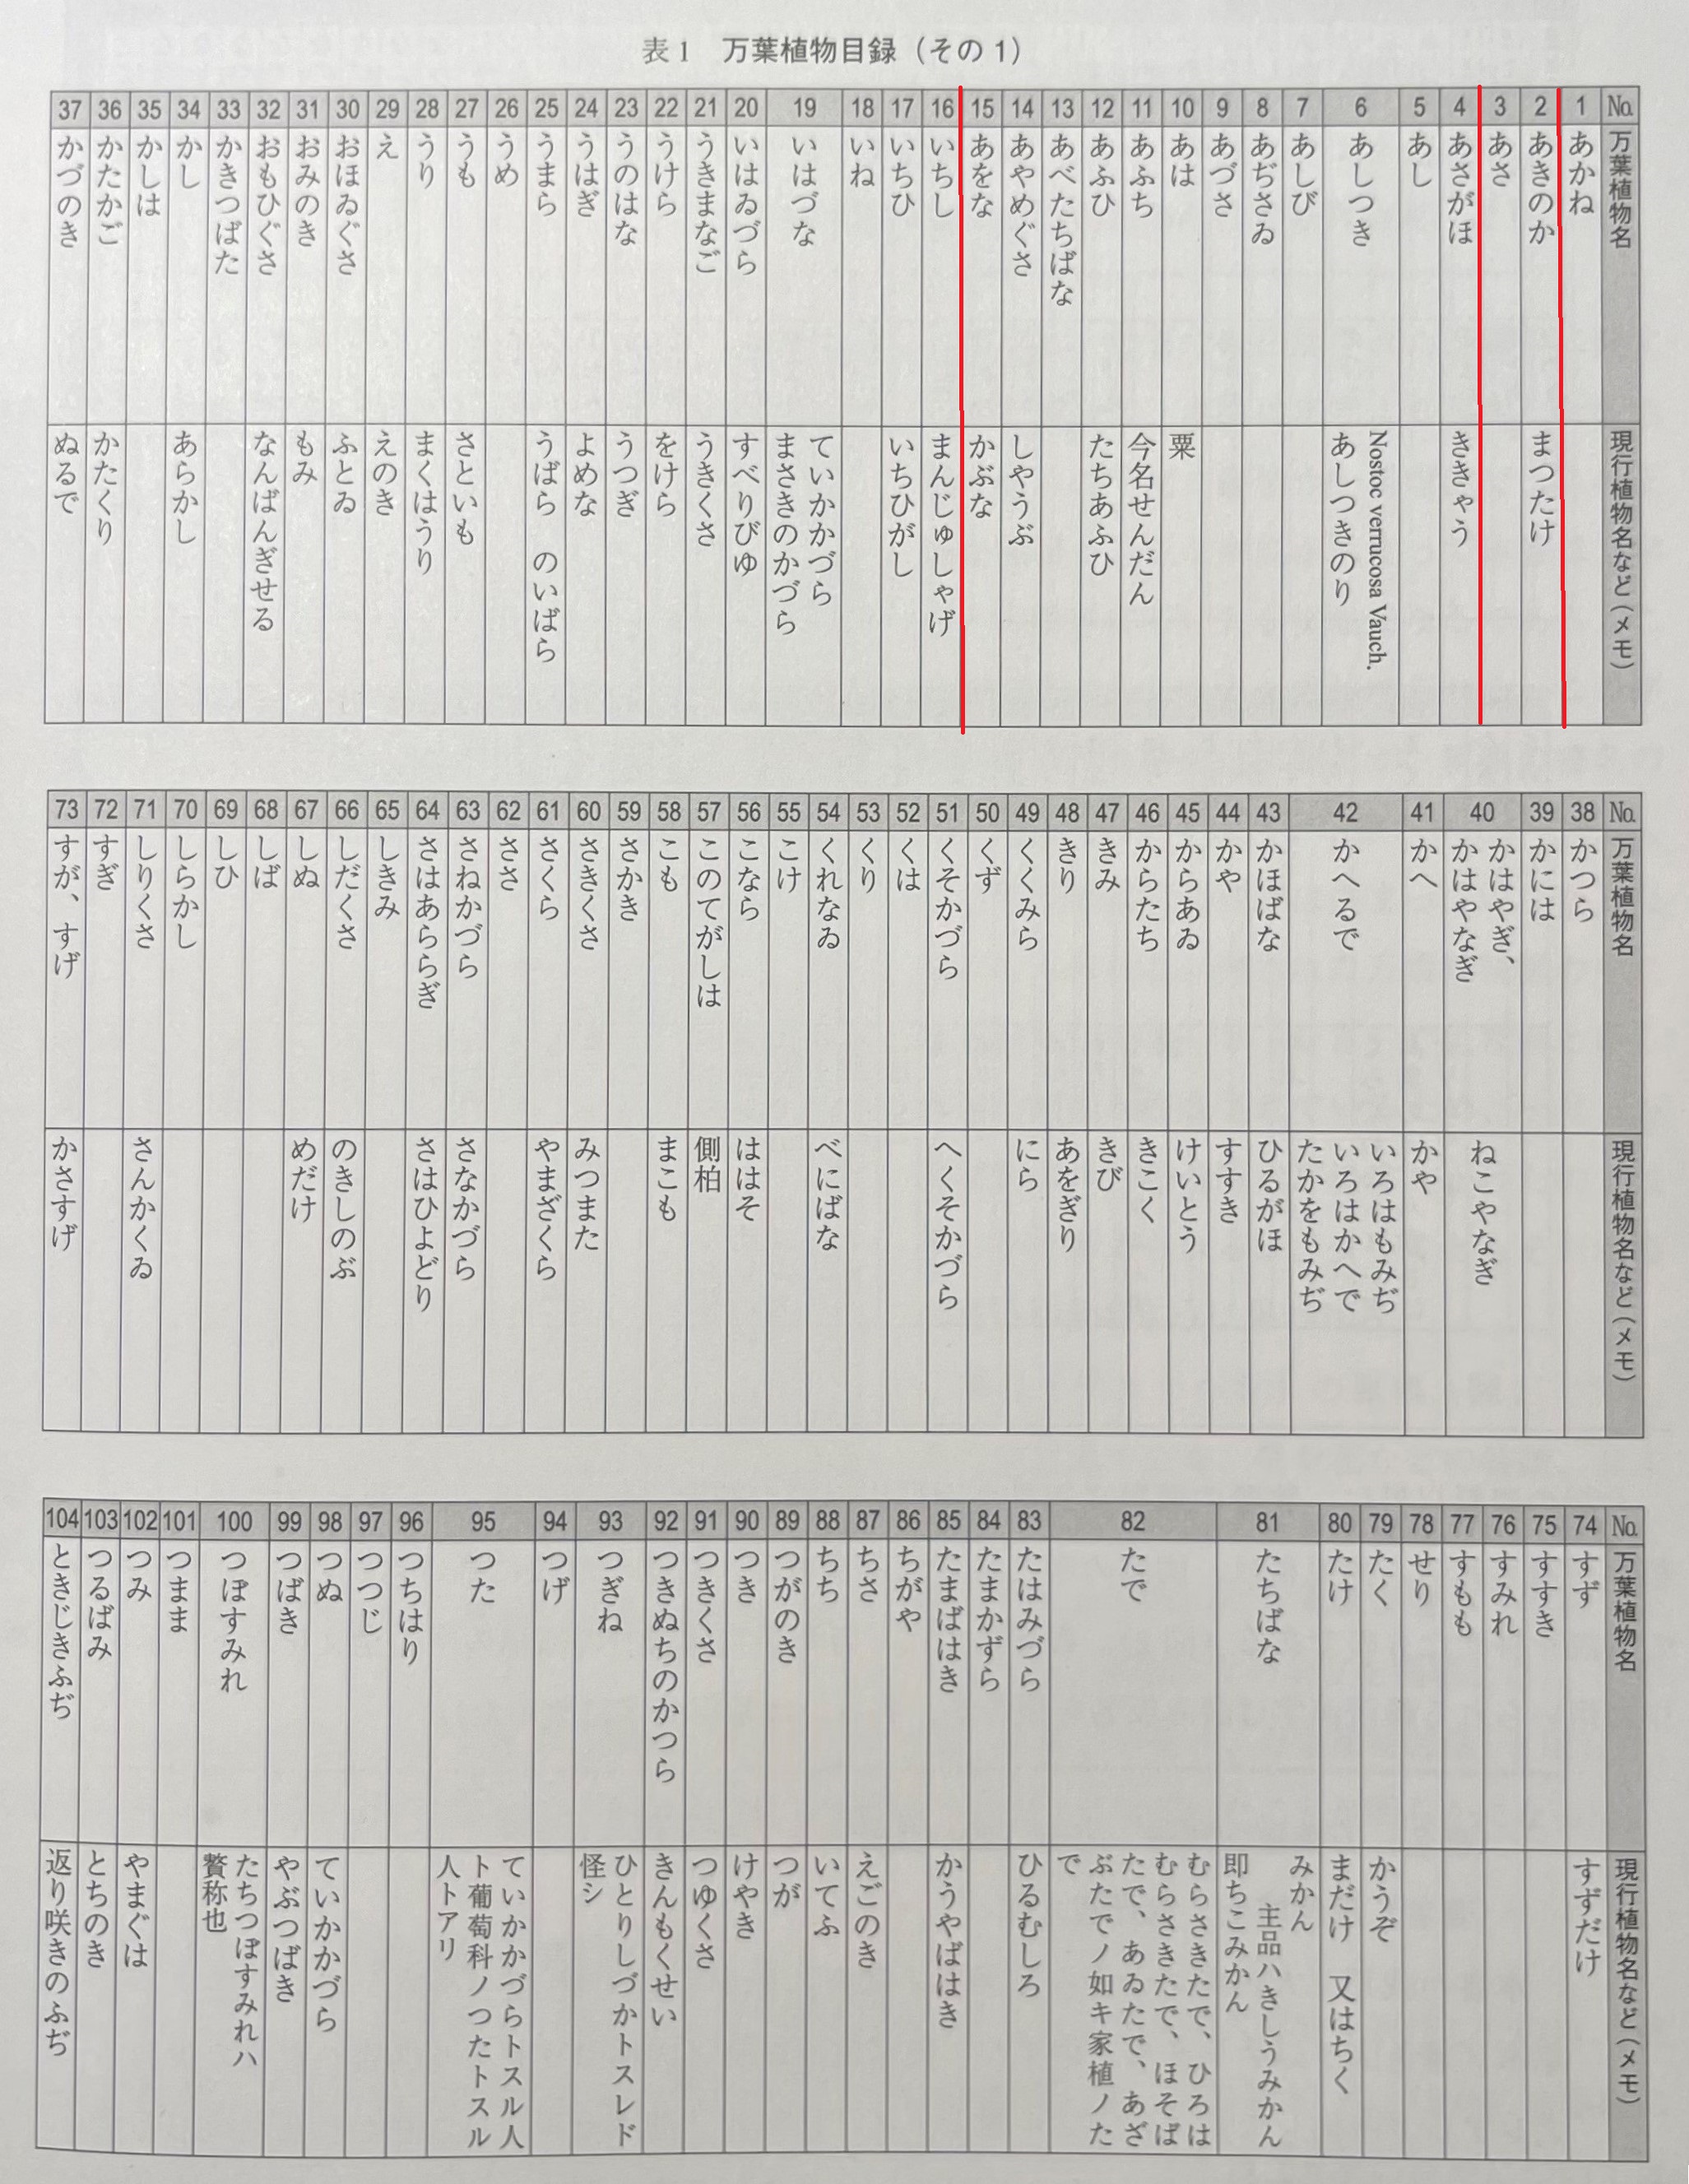 表1　万葉植物目録（その1）
No. 万葉植物名 現行植物名など（メモ）
1 あかね
2 あきのか まつたけ
3 あさ
4 あさがほ ききゃう
5 あし
6 あしつき Nostoc verrucosa Vauch.
あしつきのり
7 あしび
8 あぢさゐ
9 あづさ
10 あは 粟
11 あふち 今名せんだん
12 あふひ たちあふひ
13 あべたちばな
14 あやめぐさ しやうぶ
15 あをな かぶな
16 いちし まんじゅしゃげ
17 いちひ いちひがし
18 いね
19 いはづな ていかかづら
まさきのかづら
20 いはゐづら すべりびゆ
21 うきまなご うきくさ
22 うけら をけら
23 うのはな うつぎ
24 うはぎ よめな
25 うまら うばら　のいばら
26 うめ
27 うも さといも
28 うり まくはうり
29 え えのき
30 おほゐぐさ ふとゐ
31 おみのき もみ
32 おもひぐさ なんばんぎせる
33 かきつばた
34 かし あらかし
35 かしは
36 かたかご かたくり
37 かづのき ぬるで
No. 万葉植物名 現行植物名など（メモ）
38 かつら
39 かには
40 かはやぎ、
かはやなぎ ねこやなぎ
41 かへ かや
42 かへるで いろはもみぢ
いろはかへで
たかをもみぢ
43 かほばな ひるがほ
44 かや すすき
45 からあゐ けいとう
46 からたち きこく
47 きみ きび
48 きり あをぎり
49 くくみら にら
50 くず
51 くそかづら へくそかづら
52 くは
53 くり
54 くれなゐ べにばな
55 こけ
56 こなら ははそ
57 このてがしは 側柏
58 こも まこも
59 さかき
60 さきくさ みつまた
61 さくら やまざくら
62 ささ
63 さねかづら さなかづら
64 さはあららぎ さはひよどり
65 しきみ
66 しだくさ のきしのぶ
67 しぬ めだけ
68 しば
69 しひ
70 しらかし
71 しりくさ さんかくゐ
72 すぎ
73 すが、すげ かさすげ
No. 万葉植物名 現行植物名など（メモ）
74 すず すずだけ
75 すすき
76 すみれ
77 すもも
78 せり
79 たく かうぞ
80 たけ まだけ　又はちく
81 たちばな みかん
主品ハきしうみかん
即ちこみかん
82 たで むらさきたで、ひろは
むらさきたで、ほそば
たで、あゐたで、あざ
ぶたでノ如キ家植ノた
で
83 たはみづら ひるむしろ
84 たまかずら
85 たまばはき かうやばはき
86 ちがや
87 ちさ えごのき
88 ちち いてふ
89 つがのき つが
90 つき けやき
91 つきくさ つゆくさ
92 つきぬちのかつら きんもくせい
93 つぎね ひとりしづかトスレド
怪シ
94 つげ
95 つた ていかかづらトスル人
ト葡萄科ノつたトスル
人トアリ
96 つちはり
97 つつじ
98 つぬ ていかかづら
99 つばき やぶつばき
100 つぼすみれ たちつぼすみれハ
贅称也
101 つまま
102 つみ やまぐは
103 つるばみ とちのき
104 ときじきふぢ 返り咲きのふぢ